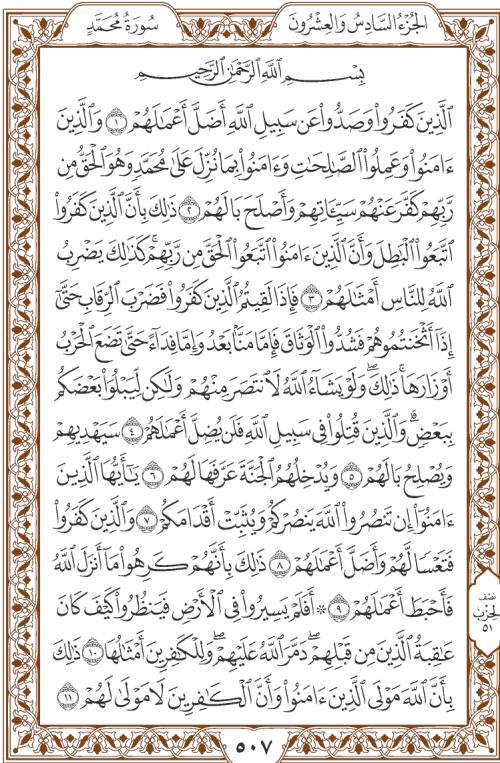 الجُزْءُ السَّادِسُ وَالعِشْرُونَ سُورَةُ مُحَمَّدٍ
بِسْمِ ٱللَّهِ ٱلرَّحْمَٰنِ ٱلرَّحِيمِ
ٱلَّذِينَ كَفَرُوا۟ وَصَدُّوا۟ عَن سَبِيلِ ٱللَّهِ أَضَلَّ أَعْمَٰلَهُمْ ١ وَٱلَّذِينَ
ءَامَنُوا۟ وَعَمِلُوا۟ ٱلصَّٰلِحَٰتِ وَءَامَنُوا۟ بِمَا نُزِّلَ عَلَىٰ مُحَمَّدٍ وَهُوَ ٱلْحَقُّ مِن
رَّبِّهِمْ كَفَّرَ عَنْهُمْ سَيِّـَٔاتِهِمْ وَأَصْلَحَ بَالَهُمْ ٢ ذَٰلِكَ بِأَنَّ ٱلَّذِينَ كَفَرُوا۟
ٱتَّبَعُوا۟ ٱلْبَٰطِلَ وَأَنَّ ٱلَّذِينَ ءَامَنُوا۟ ٱتَّبَعُوا۟ ٱلْحَقَّ مِن رَّبِّهِمْ ۚ كَذَٰلِكَ يَضْرِبُ
ٱللَّهُ لِلنَّاسِ أَمْثَٰلَهُمْ ٣ فَإِذَا لَقِيتُمُ ٱلَّذِينَ كَفَرُوا۟ فَضَرْبَ ٱلرِّقَابِ حَتَّىٰٓ
إِذَآ أَثْخَنتُمُوهُمْ فَشُدُّوا۟ ٱلْوَثَاقَ فَإِمَّا مَنًّۢا بَعْدُ وَإِمَّا فِدَآءً حَتَّىٰ تَضَعَ ٱلْحَرْبُ
أَوْزَارَهَا ۚ ذَٰلِكَ ۖ وَلَوْ يَشَآءُ ٱللَّهُ لَٱنتَصَرَ مِنْهُمْ وَلَٰكِن لِّيَبْلُوَا۟ بَعْضَكُم
بِبَعْضٍ ۗ وَٱلَّذِينَ قُتِلُوا۟ فِى سَبِيلِ ٱللَّهِ فَلَن يُضِلَّ أَعْمَٰلَهُمْ ٤ سَيَهْدِيهِمْ
وَيُصْلِحُ بَالَهُمْ ٥ وَيُدْخِلُهُمُ ٱلْجَنَّةَ عَرَّفَهَا لَهُمْ ٦ يَٰٓأَيُّهَا ٱلَّذِينَ
ءَامَنُوٓا۟ إِن تَنصُرُوا۟ ٱللَّهَ يَنصُرْكُمْ وَيُثَبِّتْ أَقْدَامَكُمْ ٧ وَٱلَّذِينَ كَفَرُوا۟
فَتَعْسًا لَّهُمْ وَأَضَلَّ أَعْمَٰلَهُمْ ٨ ذَٰلِكَ بِأَنَّهُمْ كَرِهُوا۟ مَآ أَنزَلَ ٱللَّهُ
فَأَحْبَطَ أَعْمَٰلَهُمْ ٩ ۞ أَفَلَمْ يَسِيرُوا۟ فِى ٱلْأَرْضِ فَيَنظُرُوا۟ كَيْفَ كَانَ
عَٰقِبَةُ ٱلَّذِينَ مِن قَبْلِهِمْ ۚ دَمَّرَ ٱللَّهُ عَلَيْهِمْ ۖ وَلِلْكَٰفِرِينَ أَمْثَٰلُهَا ١٠ ذَٰلِكَ
بِأَنَّ ٱللَّهَ مَوْلَى ٱلَّذِينَ ءَامَنُوا۟ وَأَنَّ ٱلْكَٰفِرِينَ لَا مَوْلَىٰ لَهُمْ ١١
نصف
الحزب
٥١
٥٠٧